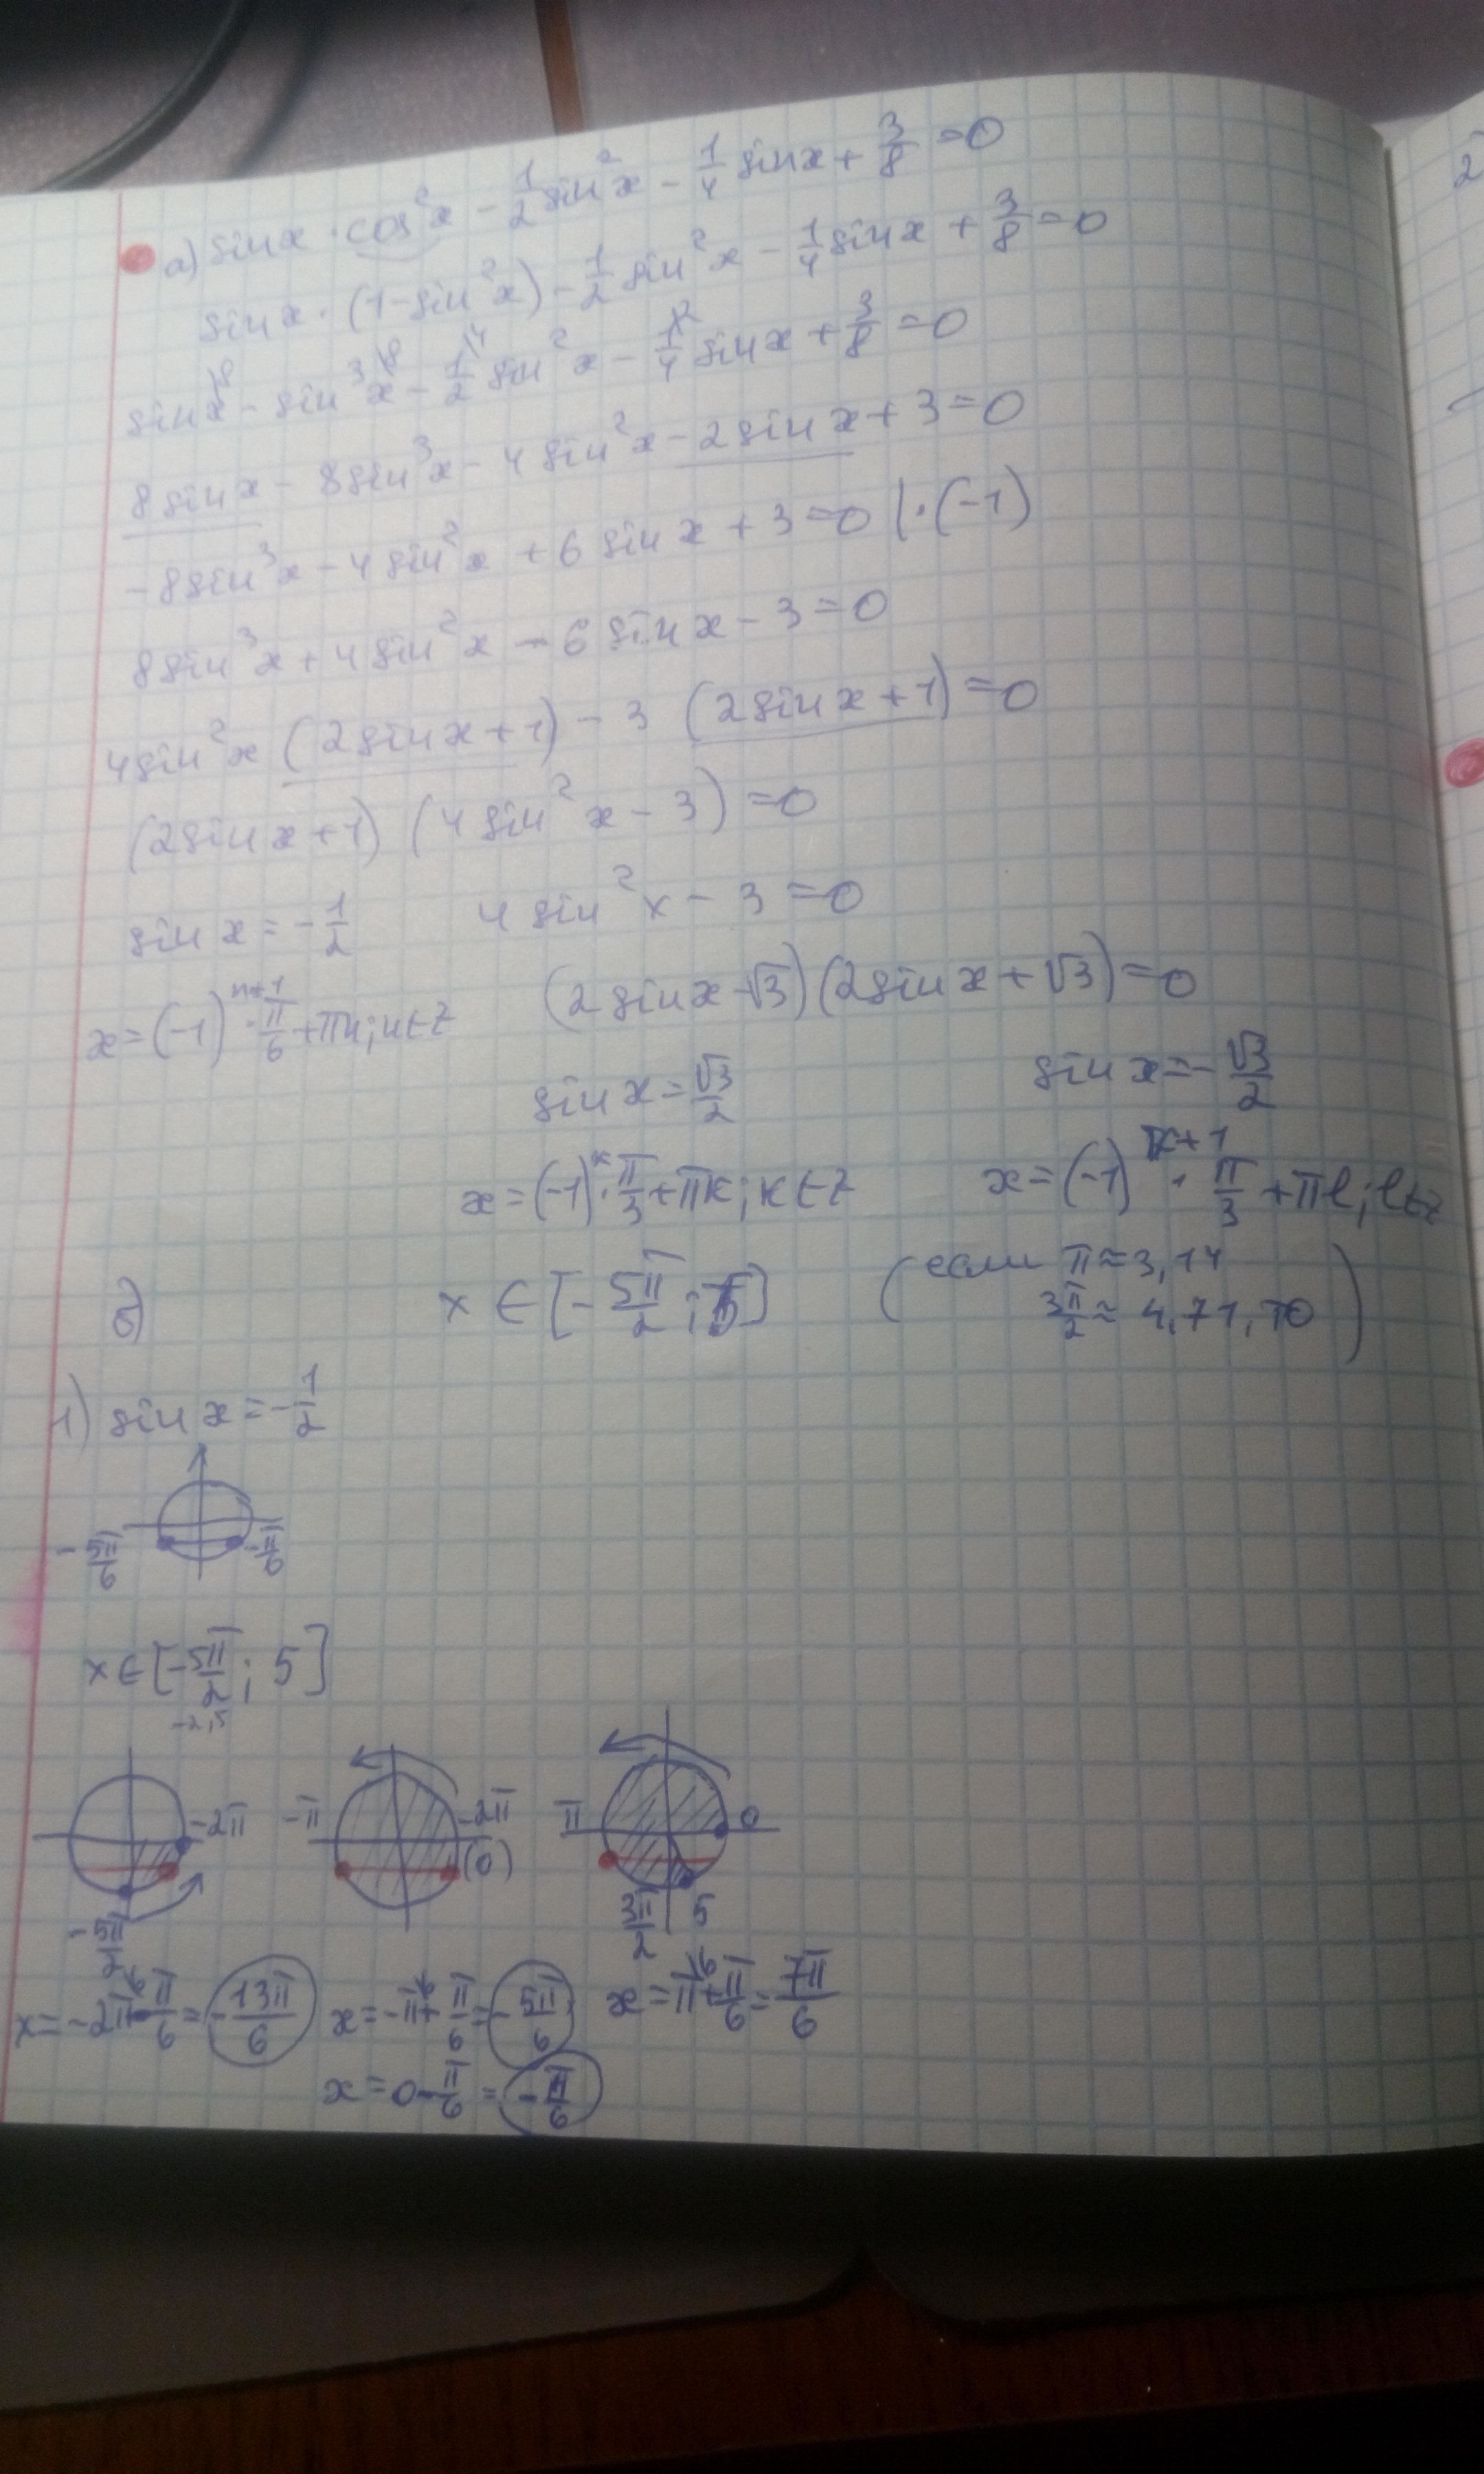 а) sin x · cos²x - 1/2 sin²x - 1/4 sin x + 3/8 = 0
sin x · (1 - sin²x) - 1/2 sin²x - 1/4 sin x + 3/8 = 0
sin x\8 - sin³x\8 - 1/2\4 sin²x - 1/4\2 sin x + 3/8 = 0
8 sin x - 8 sin³x - 4 sin²x - 2 sin x + 3 = 0
-8 sin³x - 4 sin²x + 6 sin x + 3 = 0 | · (-1)
8 sin³x + 4 sin²x - 6 sin x - 3 = 0
4 sin²x (2 sin x + 1) - 3 (2 sin x + 1) = 0
(2 sin x + 1) (4 sin²x - 3) = 0
sin x = -1/2    4 sin²x - 3 = 0
x = (-1)ⁿ⁺¹ · π/6 + πn; n ∈ Z    (2 sin x - √3)(2 sin x + √3) = 0
sin x = √3/2    sin x = -√3/2
x = (-1)ᵏ · π/3 + πk; k ∈ Z    x = (-1)ᵏ⁺¹ · π/3 + πl; l ∈ Z
б)    x ∈ [-5π/2; 5]    (если π ≈ 3,14
3π/2 ≈ 4,71, )
1) sin x = -1/2
-5π/6    -π/6
x ∈ [-5π/2; 5]
-2,5
-2π    -π    -2π    π    0
(0)
-5π/2    3π/2    5
x = -2π\6 - π/6 = -13π/6    x = -π\6 + π/6 = -5π/6    x = π\6 + π/6 = 7π/6
x = 0 - π/6 = -π/6
2